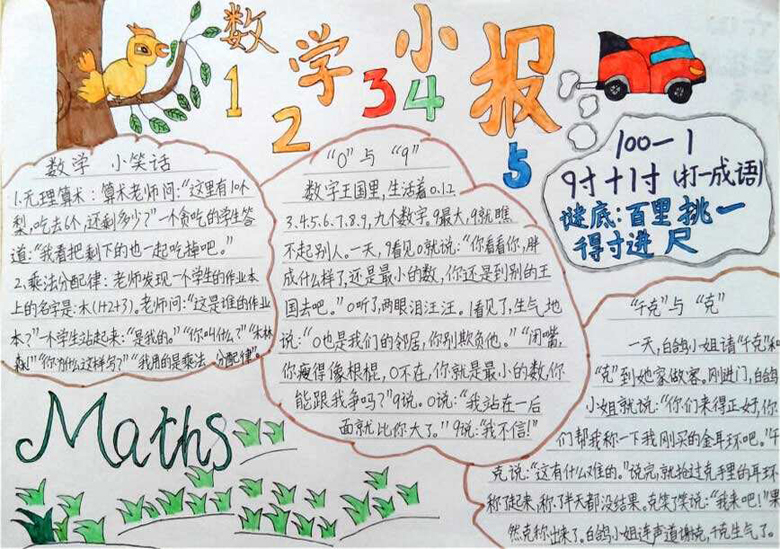 数学小报
1 2 3 4 5
数学 小笑话
1.无理算术:算术老师问:“这里有10个
梨,吃去6个,还剩多少?”一个贪吃的学生答
道:“我看把剩下的也一起吃掉吧。”
2、乘法分配律:老师发现一个学生的作业本
上的名字是:木(1+2+3)。老师问:“这是谁的作业
本?”一个学生站起来:“是我的。”“你叫什么?”“木林
森!”“你为什么这样写?”“我用的是乘法 分配律”。
“0”与“9”
数字王国里,生活着0.1.2.
3.4.5.6.7.8.9,九个数字。9最大,9就瞧
不起别人。一天,9看见0就说:“你看看你,胖
成什么样了,还是最小的数,你还是到别的王
国去吧。”0听了,两眼泪汪汪。1看见了,生气地
说:“0也是我们的邻居,你别欺负他。”“闭嘴,
你瘦得像根棍,0不在,你就是最小的数,你
能跟我争吗?”9说。0说:“我站在一后
面就比你大了。”9说:“我不信!”
100-1
9寸+1寸(打一成语)
谜底:百里挑一
得寸进尺
“千克”与“克”
一天,白鸽小姐请“千克”和
“克”到她家做客。刚进门,白鸽
小姐就说:“你们来得正好,你
们帮我称一下我刚买的金耳环吧。”千
克说:“这有什么难的。”说完,就抢过克手里的耳环
称了起来,称了半天都没结果。克笑了笑说:“我来吧!”果
然克称出来了。白鸽小姐连声道谢克,千克生气了。
Maths